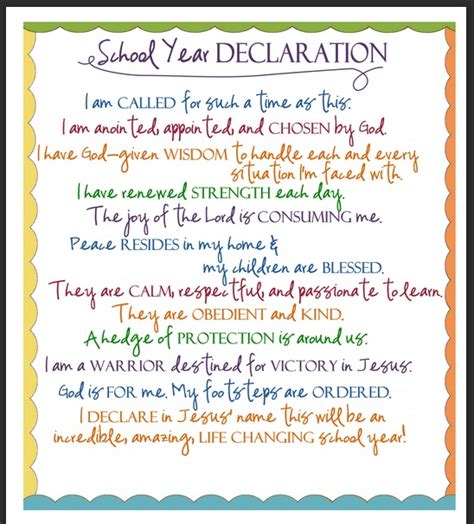 School Year DECLARATION
I am CALLED for such a time as this.
I am anointed, appointed, and CHOSEN by God.
I have God-given WISDOM to handle each and every
situation I'm faced with.
I have renewed STRENGTH each day.
The joy of the Lord is CONSUMING me.
Peace RESIDES in my home &
my children are BLESSED.
They are CALM, respectful, and passionate to learn.
They are OBEDIENT and KIND.
A hedge of PROTECTION is around us.
I am a WARRIOR destined for VICTORY in Jesus.
God is FOR me. My footsteps are ORDERED.
I DECLARE in Jesus' name this will be an
incredible, amazing, LIFE CHANGING school year!